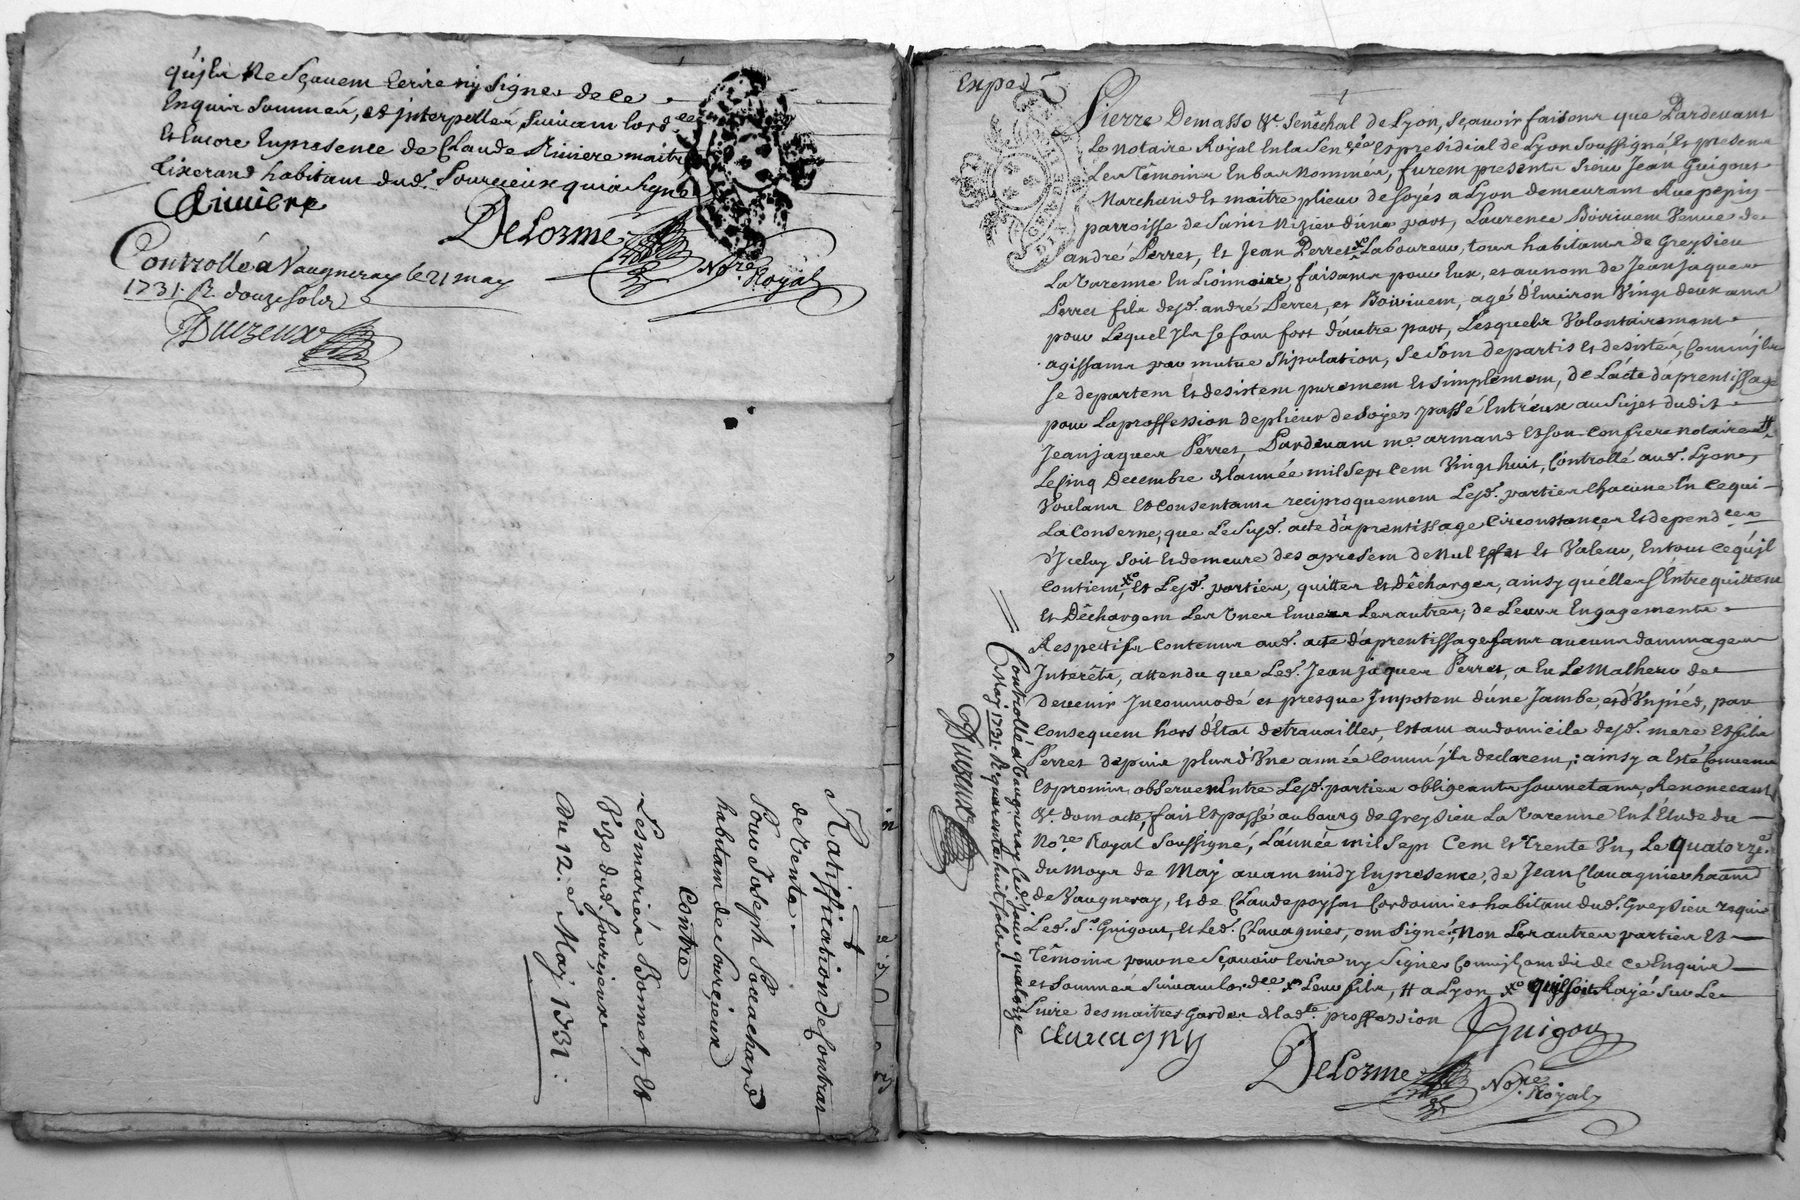 qu'ils ne sçavent Ecrire ny signer de ce
Enquis sommés, et interpellés suivant lord.ce
Et Encore En presence de Claude Riviere maitre
Tixerand habitant dud. Sourcieux qui a signé
CRiviere
DeLorme
No.re Royal
Controllé a Vaugneray le 21 may
1731. R. douze sols
Duizeux
Ratiffication de Contrat
de Rente.
Pour Joseph Pouachard
habitant de Sourcieux
Contre
Les mariés Bonnet, Et
Pizo dud. Sourcieux
Du 12.e May 1731.
Exped
Pierre Demasso Sénéchal de Lyon, sçavoir faisons que Pardevant
Le notaire Royal En la Sen.cée Et presidial de Lyon soussigné Et presens
Les Témoins En bas nommés, furent presents Sieur Jean Guigout
Marchand Et maitre plieur de soyes a Lyon demeurant Rue pepin
parroisse de Saint Nizier d'une part, Laurence Boivivent Veuve de
andré Perret, Et Jean Perret Laboureur, tous habitants de Greysieu
La Varenne En Lionnois faisants pour Eux, et au nom de Jean Jaques
Perret fils desd. andré Perret, et Boivivent, agé d'Environ Vingt deux ans
pour Lequel Ils se font fort d'autre part, Lesquels Volontairement
agissants par mutue stipulation, se sont départis et desistés, Comm'ils
se departent Et desistent purement Et simplement, de L'acte d'aprentissage
pour La proffession de plieur de soyes passé Entr'eux au sujet dudit
Jean Jaques Perret, Pardevant me. armand Et son Confrere notaires #
Le Cinq Decembre de l'année mil sept Cent Vingt huit, Controllé aud. Lyon,
Voulans Et Consentans reciproquement Lesd. parties Chacune En ce qui
La Conserne, que Le susd. acte d'aprentissage Circonstances Et depend.ces
d'Iceluy soit Et demeure des apresent de nul Effet Et Valeur, En tout ce qu'il
Contient, Et Lesd. parties, quittes Et Déchargés, ainsy qu'elles s'Entrequittent
Et Déchargent Les Unes Envers Les autres, de Leurs Engagements
Respectifs Contenus aud. acte d'aprentissage sans aucuns dommages
Interêts, attendu que Led. Jean Jaques Perret, a Eu Le Malheur de
devenir Incommodé et presque Impotent d'une Jambe, et d'Un pied, par
Consequent hors d'Etat de travailler, Estant au domicile desd. mere Et fils
Perret depuis plus d'Une année Comm'ils declarent, ainsy a Eté Convenu
Et promis observer Entre Lesd. parties obligeants soumetans, Renonceants
&. dont acte, fait Et passé au bourg de Greysieu La Varenne En L'Etude du
No.re Royal soussigné, L'année mil sept Cent Et Trente Un, Le quatorze
du mois de May avant midy En presence, de Jean Clavagnier
de Vaugneray, Et de Claude poysat Cordonnier habitant dud. Greysieu
Led. Sr. Guigout, Et Led. Clavagnier, ont signé, Non Les autres parties Et
Témoins pour ne sçavoir Ecrire ny signer Comm'ils ont dit de ce Enquis
et sommés suivant lord.ce x Leur fils, # a Lyon qu'il soit Rayé sur Le
Livre des maitres Gardes de lad.te proffession
Clavagny
Guigou
DeLorme
No.re Royal
Controllé a Vaugneray led. jour quatorze
May 1731. R. quarante huit sols
Duizeux